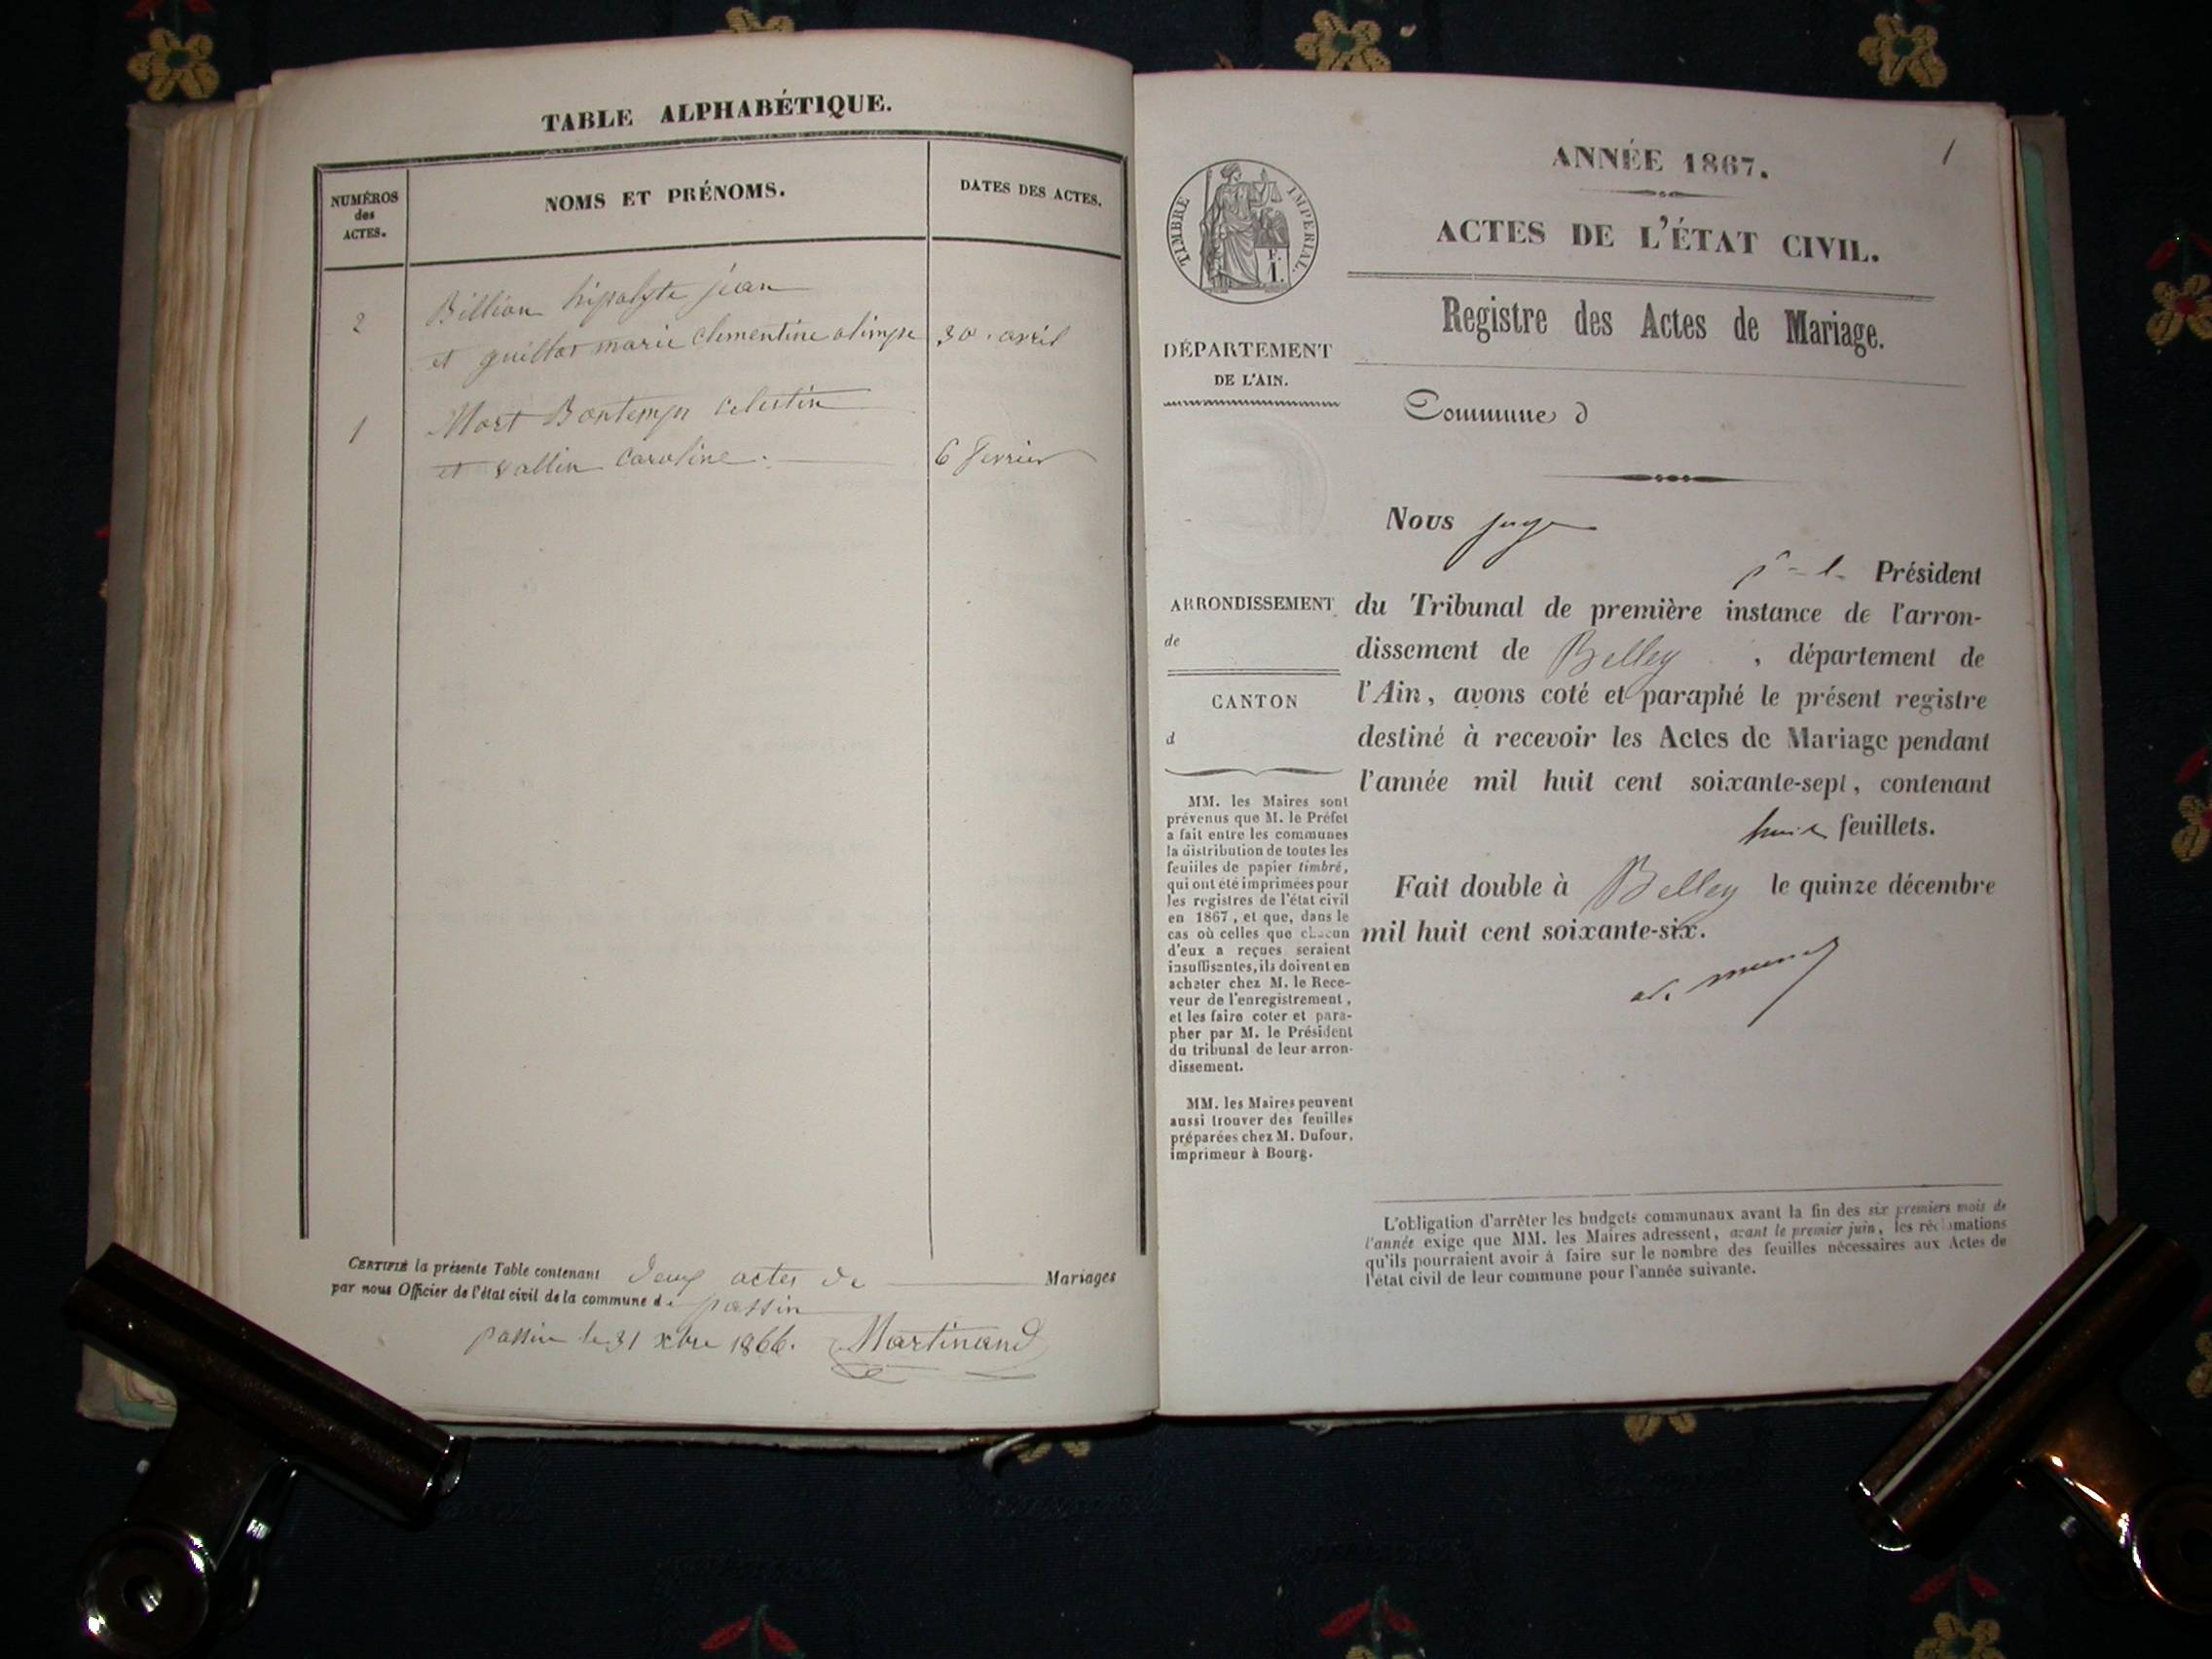 TABLE ALPHABÉTIQUE.
NUMÉROS
des
ACTES.
NOMS ET PRÉNOMS.
DATES DES ACTES.
2 Billion hipolyte jean
et guillot marie clementine olimpe 30 avril
1 Mort Bontemps celestin
et vallin Caroline. 6 Fevrier
CERTIFIÉ la présente Table contenant deux actes de Mariages
par nous Officier de l'état civil de la commune de passin
passin le 31 xbre 1866. Martinand
1
ANNÉE 1867.
ACTES DE L'ÉTAT CIVIL.
Registre des Actes de Mariage.
TIMBRE IMPÉRIAL.
P.
1.
DÉPARTEMENT
DE L'AIN.
Commune d
Nous juge
Président
du Tribunal de première instance de l'arron-
dissement de Belley, département de
l'Ain, avons coté et paraphé le présent registre
destiné à recevoir les Actes de Mariage pendant
l'année mil huit cent soixante-sept, contenant
huit feuillets.
Fait double à Belley le quinze décembre
mil huit cent soixante-six.
ARRONDISSEMENT
de
CANTON
d
MM. les Maires sont
prévenus que M. le Préfet
a fait entre les communes
la distribution de toutes les
feuilles de papier timbré,
qui ont été imprimées pour
les registres de l'état civil
en 1867, et que, dans le
cas où celles que chacun
d'eux a reçues seraient
insuffisantes, ils doivent en
acheter chez M. le Rece-
veur de l'enregistrement,
et les faire coter et para-
pher par M. le Président
du tribunal de leur arron-
dissement.
MM. les Maires peuvent
aussi trouver des feuilles
préparées chez M. Dufour,
imprimeur à Bourg.
L'obligation d'arrêter les budgets communaux avant la fin des six premiers mois de
l'année exige que MM. les Maires adressent, avant le premier juin, les réclamations
qu'ils pourraient avoir à faire sur le nombre des feuilles nécessaires aux Actes de
l'état civil de leur commune pour l'année suivante.